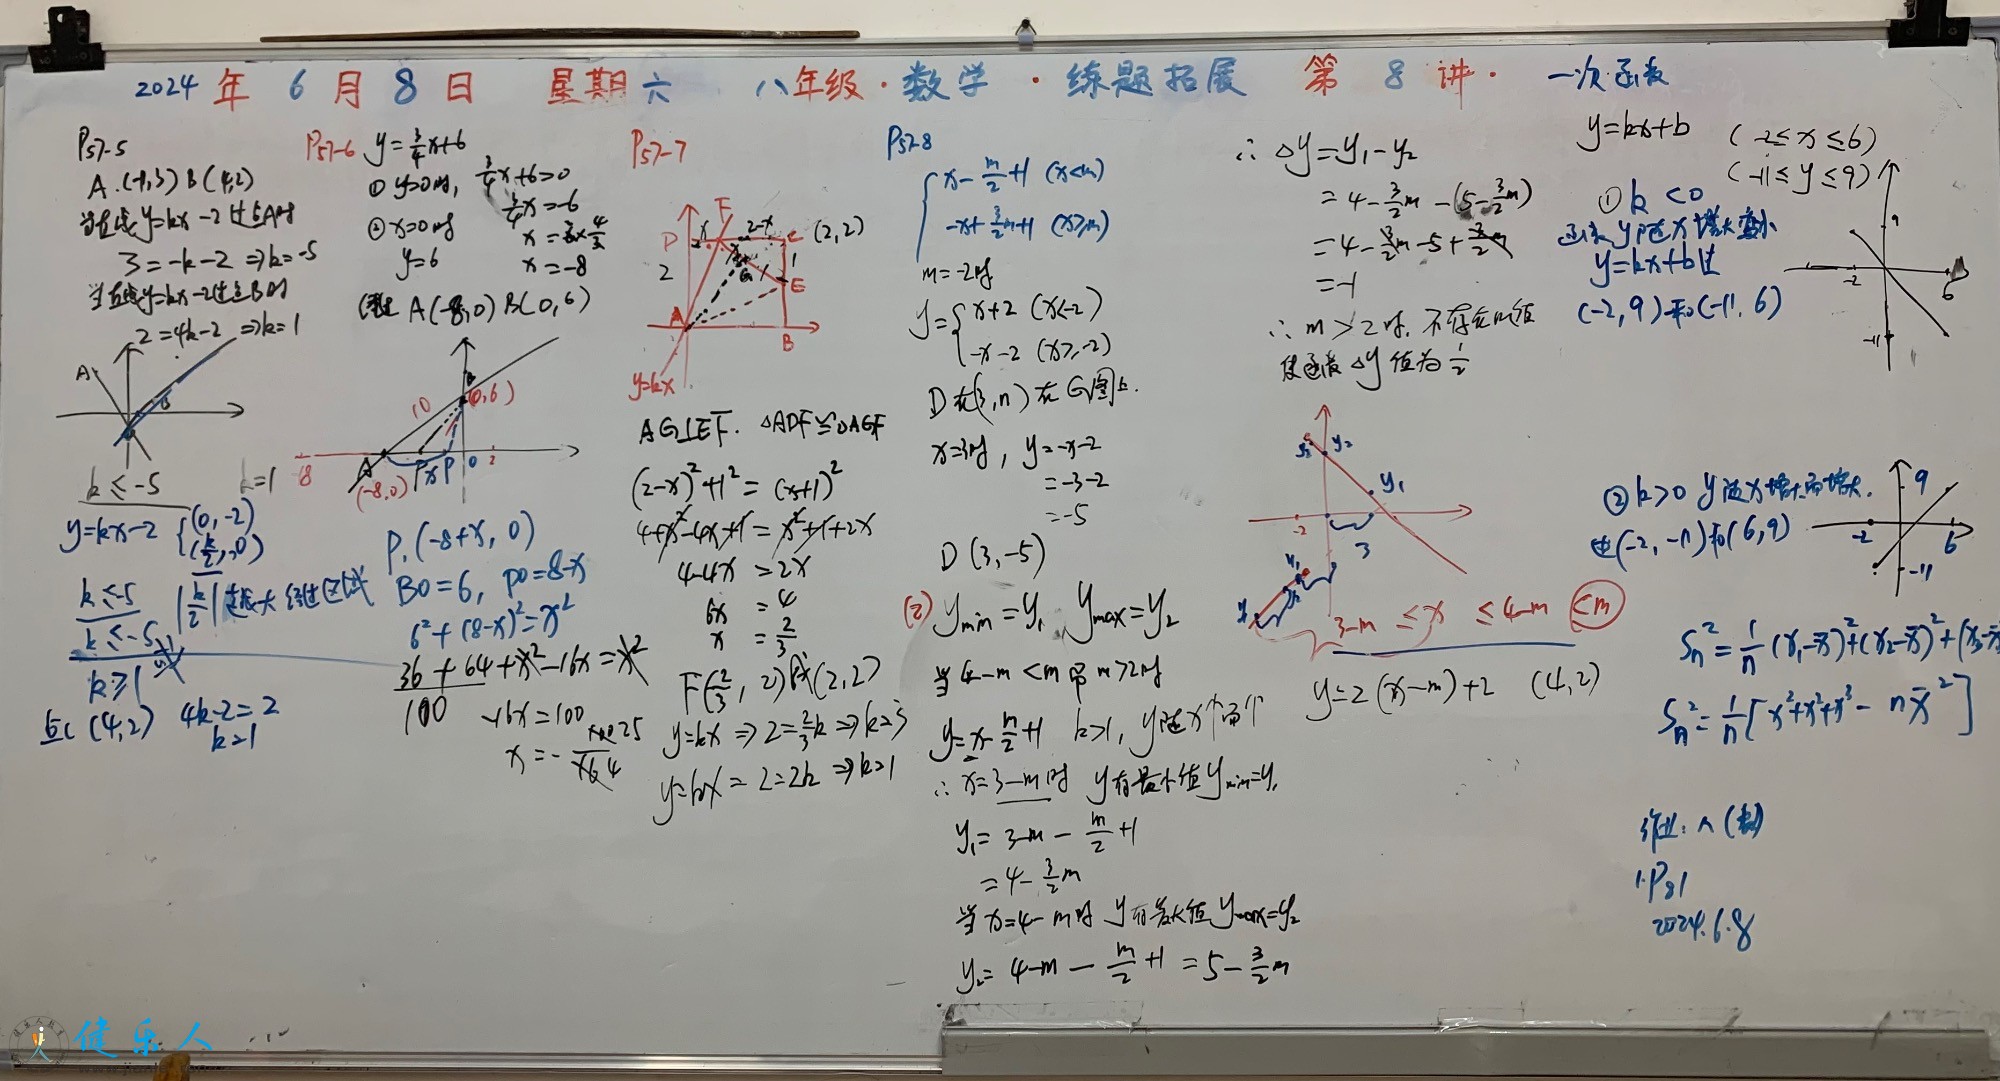 2024年6月8日 星期六 八年级·数学·练题拓展 第8讲· 一次函数
P57-5
A.(-1,3) B(4,2)
当直线y=kx-2过点A时
3=-k-2 ⇒k=-5
当直线y=kx-2过点B时
2=4k-2 ⇒k=1
A
B
k≤-5 k=1
y=kx-2 {(0,-2)
k≤-5
k≤-5
k≥1
点C (4,2) 4k-2=2
k=1
P57-6 y=3/4x+6
① y=0时, 3/4x+6=0
3/4x=-6
② x=0时
y=6
x=-8
A(-8,0) B(0,6)
10
B
(0,6)
-8 A P x P 0 2
(-8,0)
P.(-8+x, 0)
BO=6, PO=8-x
6²+(8-x)²=x²
36+64+x²-16x=x²
100
-16x=100
P57-7
F
D x 2-x C (2,2)
2
G
1
E
A
B
y=kx
AG⊥EF. △ADF≌△AGF
(2-x)²+1²=(x+1)²
4+x²-4x+1=x²+1+2x
4-4x=2x
6x=4
x=2/3
F(2/3, 2)或(2,2)
y=kx ⇒2=2/3k ⇒k=3
y=kx = 2=2k ⇒k=1
P57-8
{x-m/2+1 (x<m)
-x+3/2m+1 (x≥m)
m=-2时
y={x+2 (x<-2)
-x-2 (x≥-2)
D在(3,n)在G图上.
x=3时, y=-x-2
=-3-2
=-5
D(3,-5)
(2) ymin=y₁ ymax=y₂
当4-m<m即m>2时
y=x-m/2+1 k>1, y随x个而个
∴x=3-m时 y有最小值ymin=y₁
y₁=3-m-m/2+1
=4-3/2m
当x=4-m时 y有最大值ymax=y₂
y₂=4-m-m/2+1=5-3/2m
∴△y=y₁-y₂
=4-3/2m-(5-3/2m)
=4-3/2m-5+3/2m
=-1
∴m>2时,不存在m值
使函数△y值为1/2
y₂
y₁
-2
3
3-m≤x≤4-m <m
y=2(x-m)+2 (4,2)
y=kx+b (-2≤x≤6)
(-11≤y≤9)
① k<0
函数y随x增大变小
y=kx+b过
(-2,9)和(-11,6)
9
-2
6
-11
② k>0 y随x增大而增大.
过(-2,-11)和(6,9)
9
-2
6
-11
Sn²=1/n(x₁-x̄)²+(x₂-x̄)²+(x₃-x̄
Sn²=1/n[x²+x²+x³-nx̄²]
作业:
1.P81
2024.6.8
健乐人